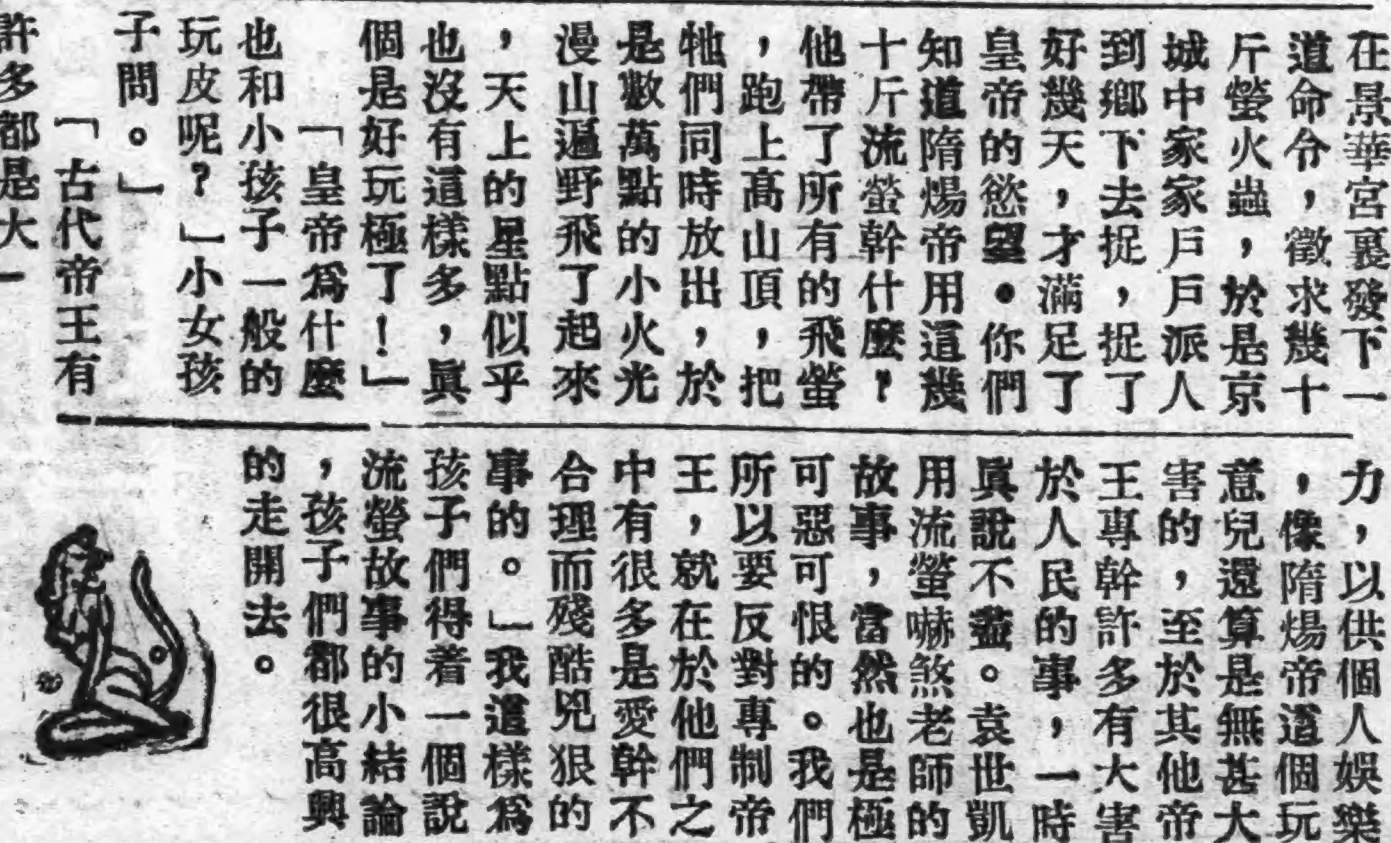 在景華宮裏發下一
道命令，徵求幾十
斤螢火蟲，於是京
城中家家戶戶派人
到鄉下去捉，捉了
好幾天，才滿足了
皇帝的慾望。你們
知道隋煬帝用這幾
十斤流螢幹什麼？
他帶了所有的飛螢
，跑上高山頂，把
牠們同時放出，於
是數萬點的小火光
漫山遍野飛了起來
，天上的星點似乎
也沒有這樣多，眞
個是好玩極了！」
「皇帝爲什麼
也和小孩子一般的
玩皮呢？」小女孩
子問。」
「古代帝王有
許多都是大
力，以供個人娛樂
，像隋煬帝這個玩
意兒還算是無甚大
害的，至於其他帝
王專幹許多有大害
於人民的事，一時
眞說不盡。袁世凱
用流螢嚇煞老師的
故事，當然也是極
可惡可恨的。我們
所以要反對專制帝
王，就在於他們之
中有很多是愛幹不
合理而殘酷兇狠的
事的。」我這樣爲
孩子們得着一個說
流螢故事的小結論
，孩子們都很高興
的走開去。